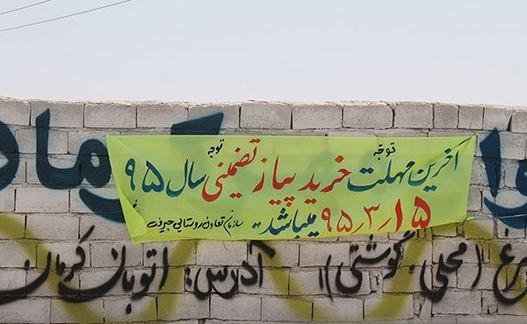 توجه توجه
آخرین مهلت خرید پیاز تضمینی سال ۹۵
۹۵٫۳٫۱۵ میباشد.
سازمان تعاون روستایی جیرفت
(محلی گوشتی)) آدرس: اتوبان کرمان